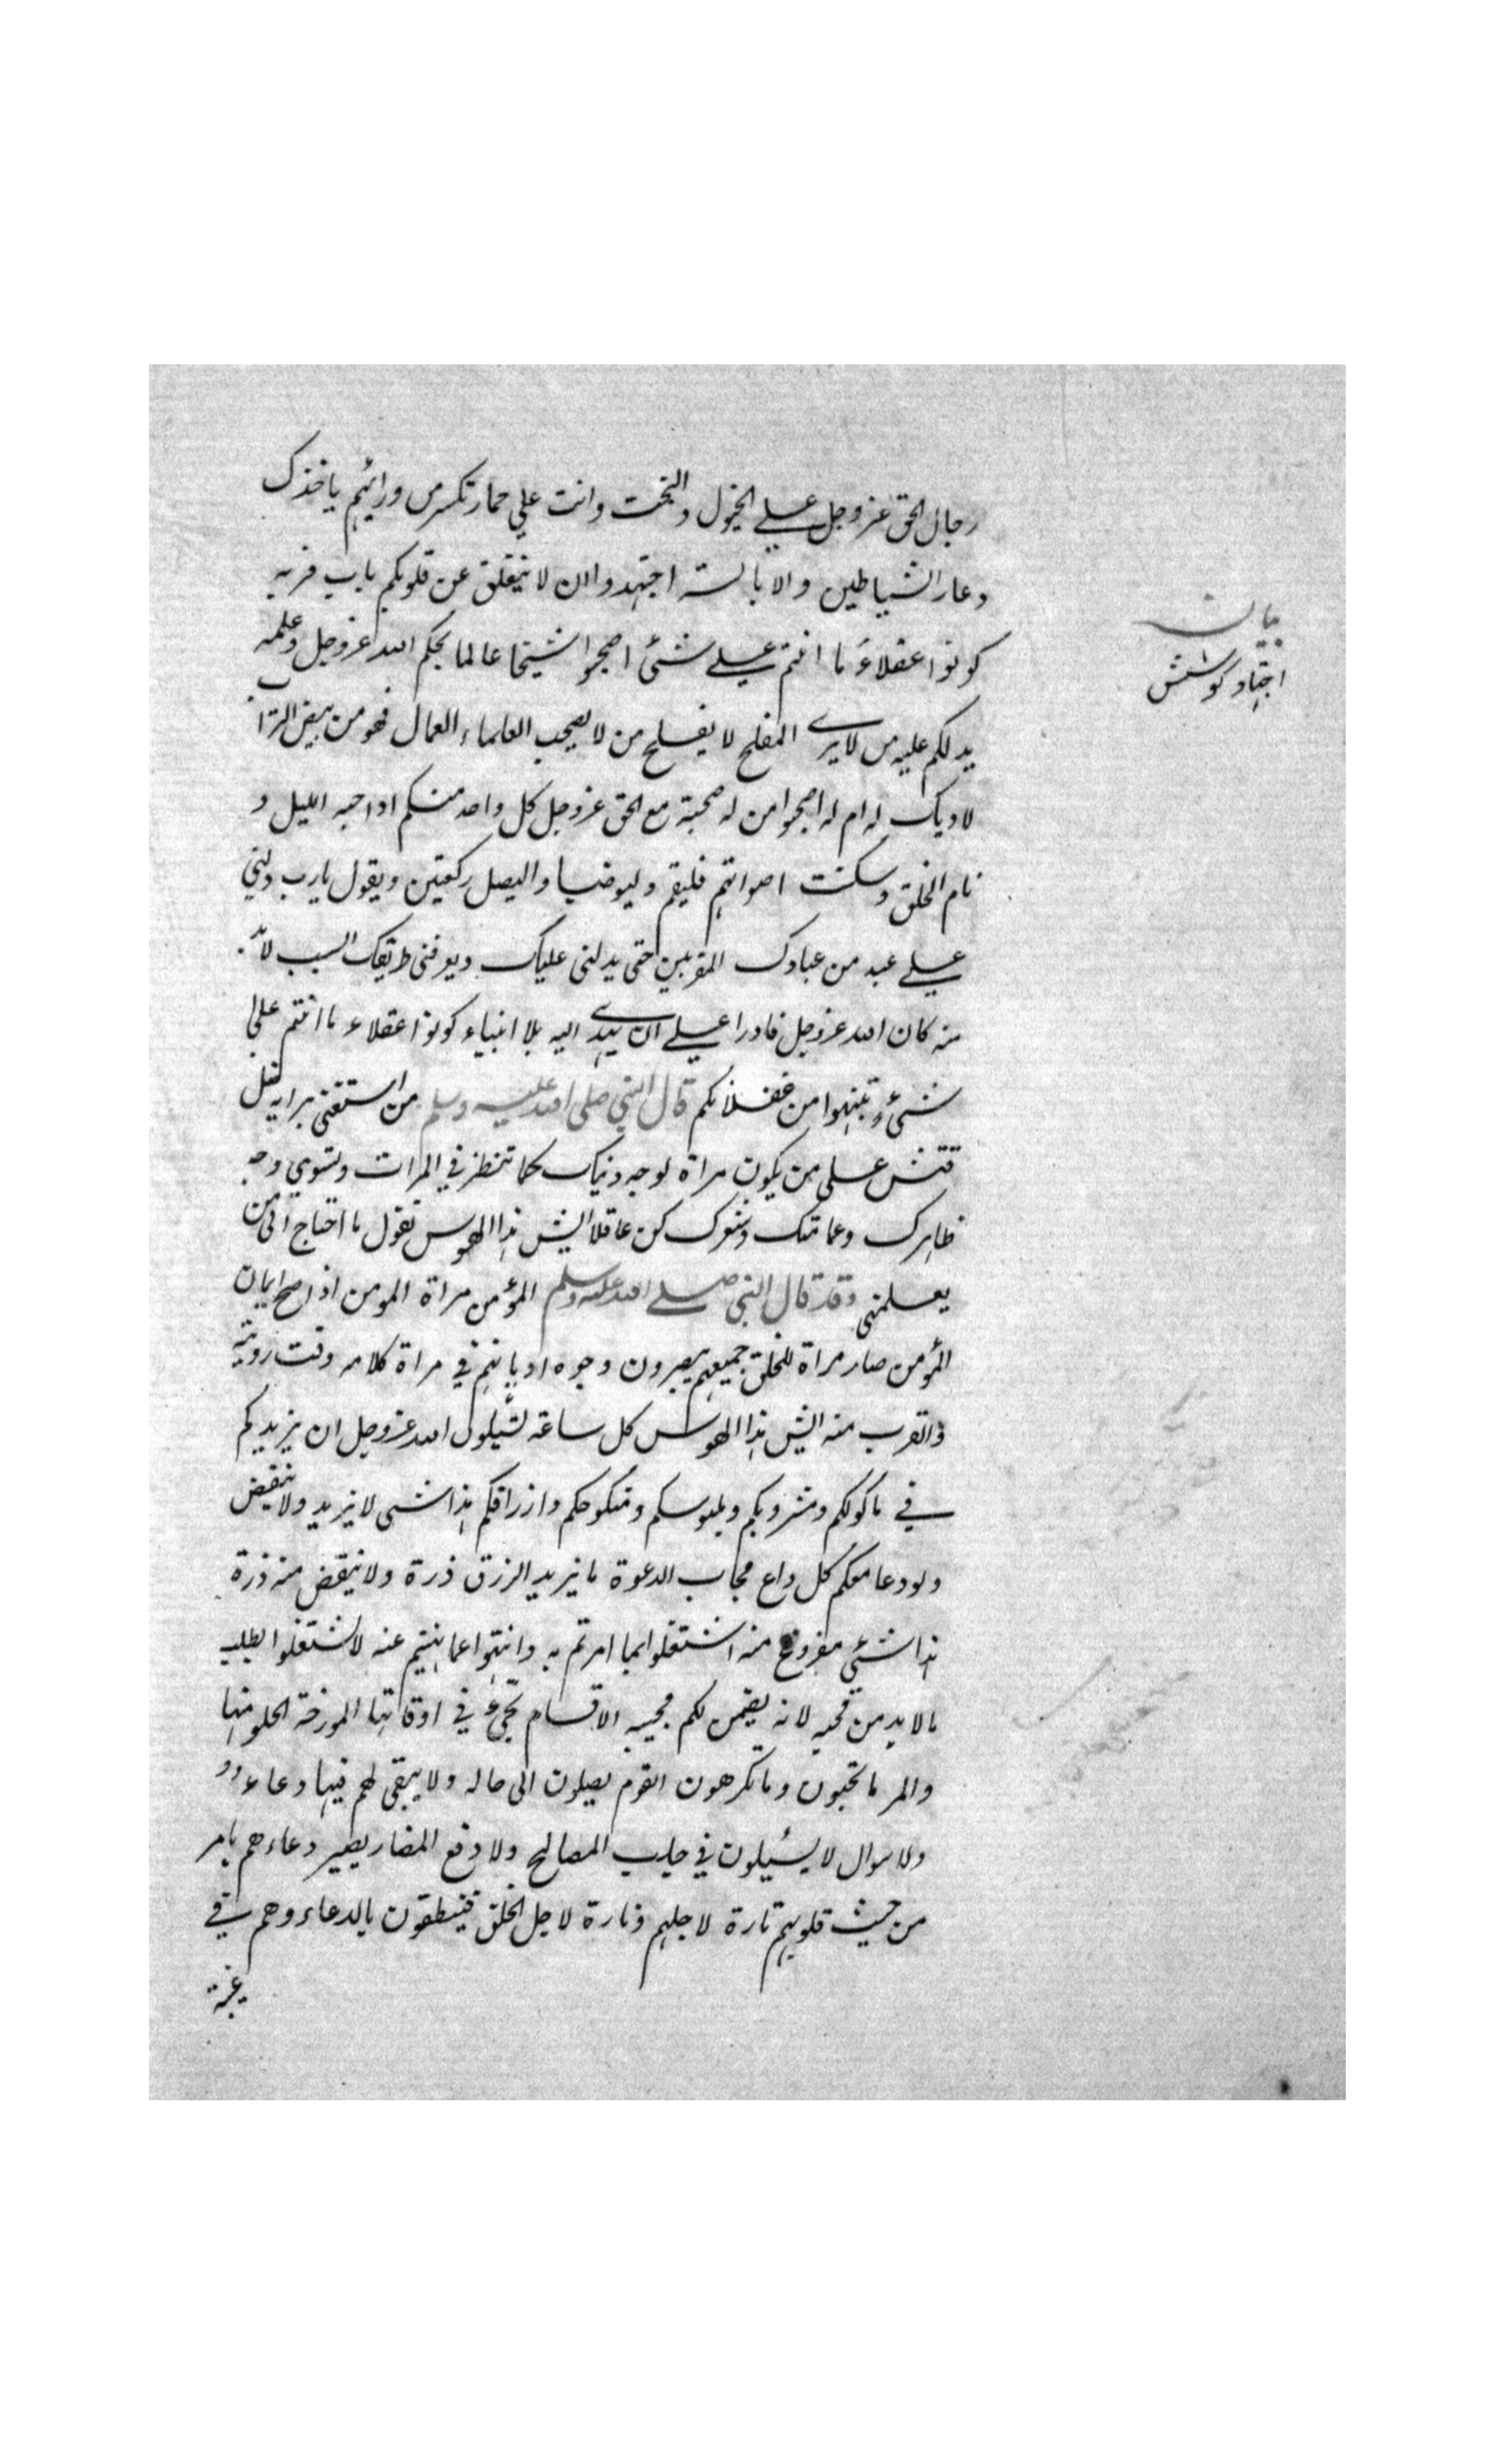 رجال الحق عز وجل علے الخيول والنجت وانت علي حمار تكسر من ورائهم ياخذك
دعار الشياطين والابالسة اجتهدوا ان لا ينغلق عن قلوبكم باب قربه
كونوا عقلاءَ ما انتم علے شئ اصحبوا شيخا عالما بحكم الله عز وجل وعلمه
يدلكم عليه من لا يرى المفلح لا يفلح من لا يصحب العلماء العمال فهو من بيض التراب
لا ديك له ام له اصحبوا من له صحبة مع الحق عز وجل كل واحد منكم اذا جنه الليل و
نام الخلق وسكنت اصواتهم فليقم وليوضيا واليصل ركعتين ويقول يا رب دلني
علے عبد من عبادك المقربين حتى يدلنى عليك ويعرفنى طريقك السبب لا بد
منه كان الله عز وجل قادرا علے ان يهدى اليه بلا انبياء كونوا عقلاء ما انتم على
شئ وتنبهوا من غفلاتكم قال النبي صلى الله عليه وسلم من استغنى برايه ضل
فتش على من يكون مراة لوجه دينك كما تنظر في المرات وتسوي وجه
ظاهرك وعمامتك وشعرك كن عاقلا ايش هذا الهوس تقول ما احتاج الى من
يعلمنى وقد قال النبى صلے الله عليه وسلم المؤمن مراة المومن اذا صح ايمان
المؤمن صار مراة للخلق جميعهم يبصرون وجوه اديانهم في مراة كلامه وقت رويته
والقرب منه ايش هذا الهوس كل ساعة تسئلون الله عز وجل ان يزيدكم
في ماكولكم ومشروبكم وملبوسكم ومنكوحكم وارزاقكم هذا شى لا يزيد ولا ينقص
ولو دعا معكم كل داع مجاب الدعوة ما يزيد الرزق ذرة ولا ينقض منه ذرة
هذا شئي مفروغ منه اشتغلوا بما امرتم به وانتهوا عما نهيتم عنه لا تشتغلوا بطلب
ما لا بد من مجيه لانه يضمن لكم مجيبه الاقسام تجئ في اوقاتها المورخة الحلو منها
والمر ما تحبون وما تكرهون القوم يصلون الى حالة ولا يبقى لهم فيها دعاء
ولا سوال لا يسئلون في جلب المصالح ولا دفع المضار يصير دعاءهم بامر
من حيث قلوبهم تارة لاجلهم وتارة لاجل الخلق فينطقون بالدعاء وهم في
غيبة
بيان
اجتهاد كوشش